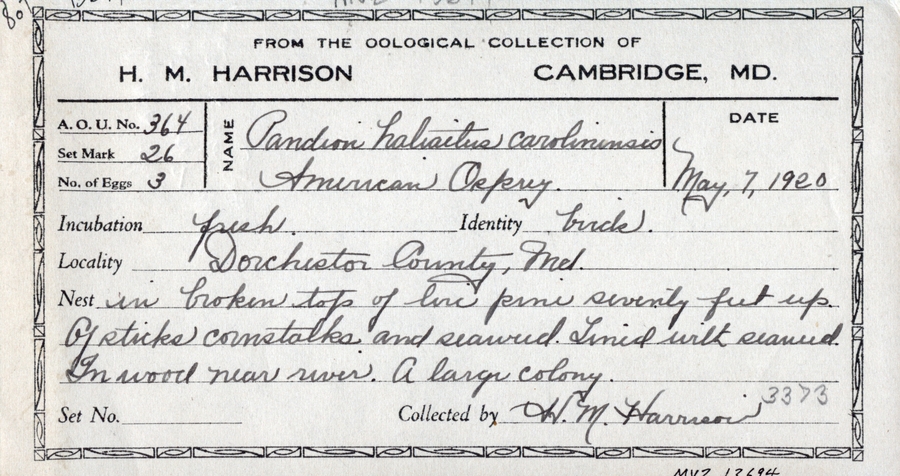 FROM THE OOLOGICAL COLLECTION OF
H. M. HARRISON CAMBRIDGE, MD.
A. O. U. No. 364
Set Mark 26
No. of Eggs 3
NAME
Pandion haliaetus carolinensis
American Osprey.
DATE
May, 7, 1920
Incubation fresh. Identity birds.
Locality Dorchester County, Md.
Nest in broken top of live pine seventy feet up.
Of sticks cornstalks and seaweed. Lined with seaweed.
In wood near river. A large colony.
3373
Set No. Collected by H. M. Harrison
MVZ 12694